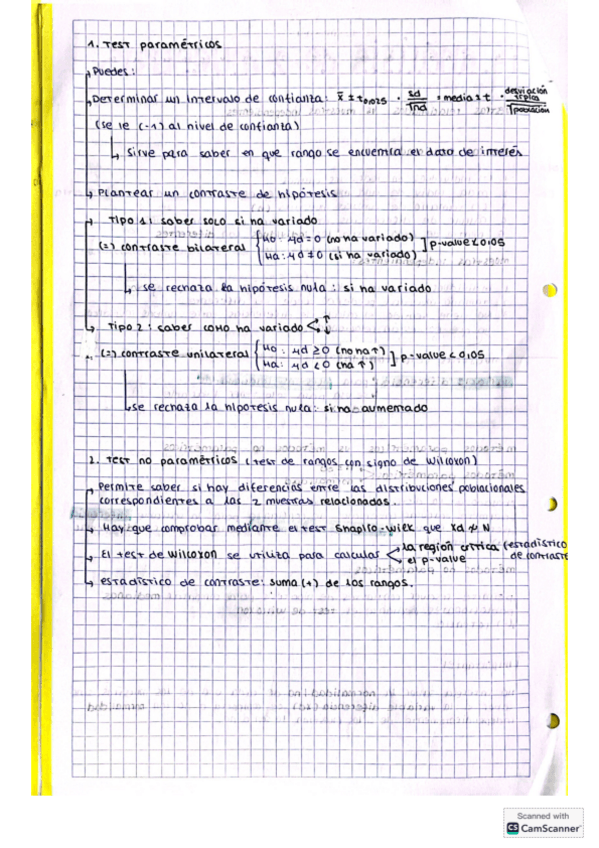 1. Test paramétricos
Puedes:
Determinar un intervalo de confianza: x̄ ± t0,025 · sd/√nd = media ± t · desviación típica/√población
(se le (-1) al nivel de confianza)
Sirve para saber en que rango se encuentra el dato de interés
Plantear un contraste de hipótesis
Tipo 1: saber solo si ha variado
(=) contraste bilateral { H0: μd = 0 (no ha variado) ] p-value < 0,05
Ha: μd ≠ 0 (si ha variado)
se rechaza la hipótesis nula: si ha variado
Tipo 2: saber como ha variado < ↑ ↓
(=) contraste unilateral { H0: μd ≥ 0 (no ha ↑) ] p-value < 0,05
Ha: μd < 0 (ha ↑)
se rechaza la hipotesis nula: si ha aumentado
2. Test no paramétricos (test de rangos con signo de Wilcoxon)
Permite saber si hay diferencias entre las distribuciones poblacionales
correspondientes a las 2 muestras relacionados.
Hay que comprobar mediante el test Shapiro-Wilk que Xd ≁ N
El test de Wilcoxon se utiliza para calcular < la región crítica (estadístico de contraste
el p-value
estadístico de contraste: suma (+) de los rangos.
Scanned with
CS CamScanner